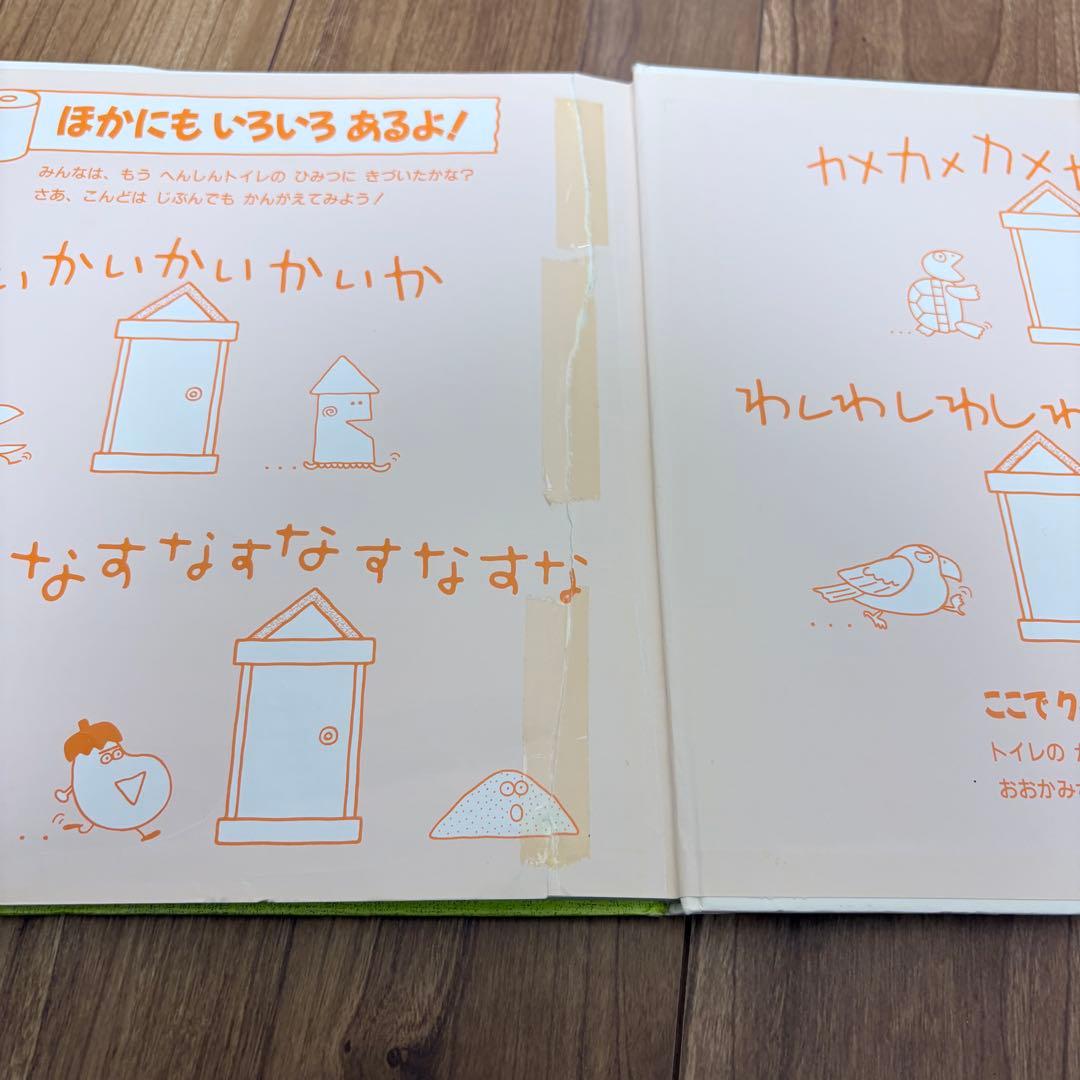 ほかにも いろいろ あるよ!
みんなは、もう へんしんトイレの ひみつに きづいたかな?
さあ、こんどは じぶんでも かんがえてみよう!
いかいかいかいか
なすなすなすなすな
カメカメカメ
わしわしわしわ
ここで
トイレの
おおかみ